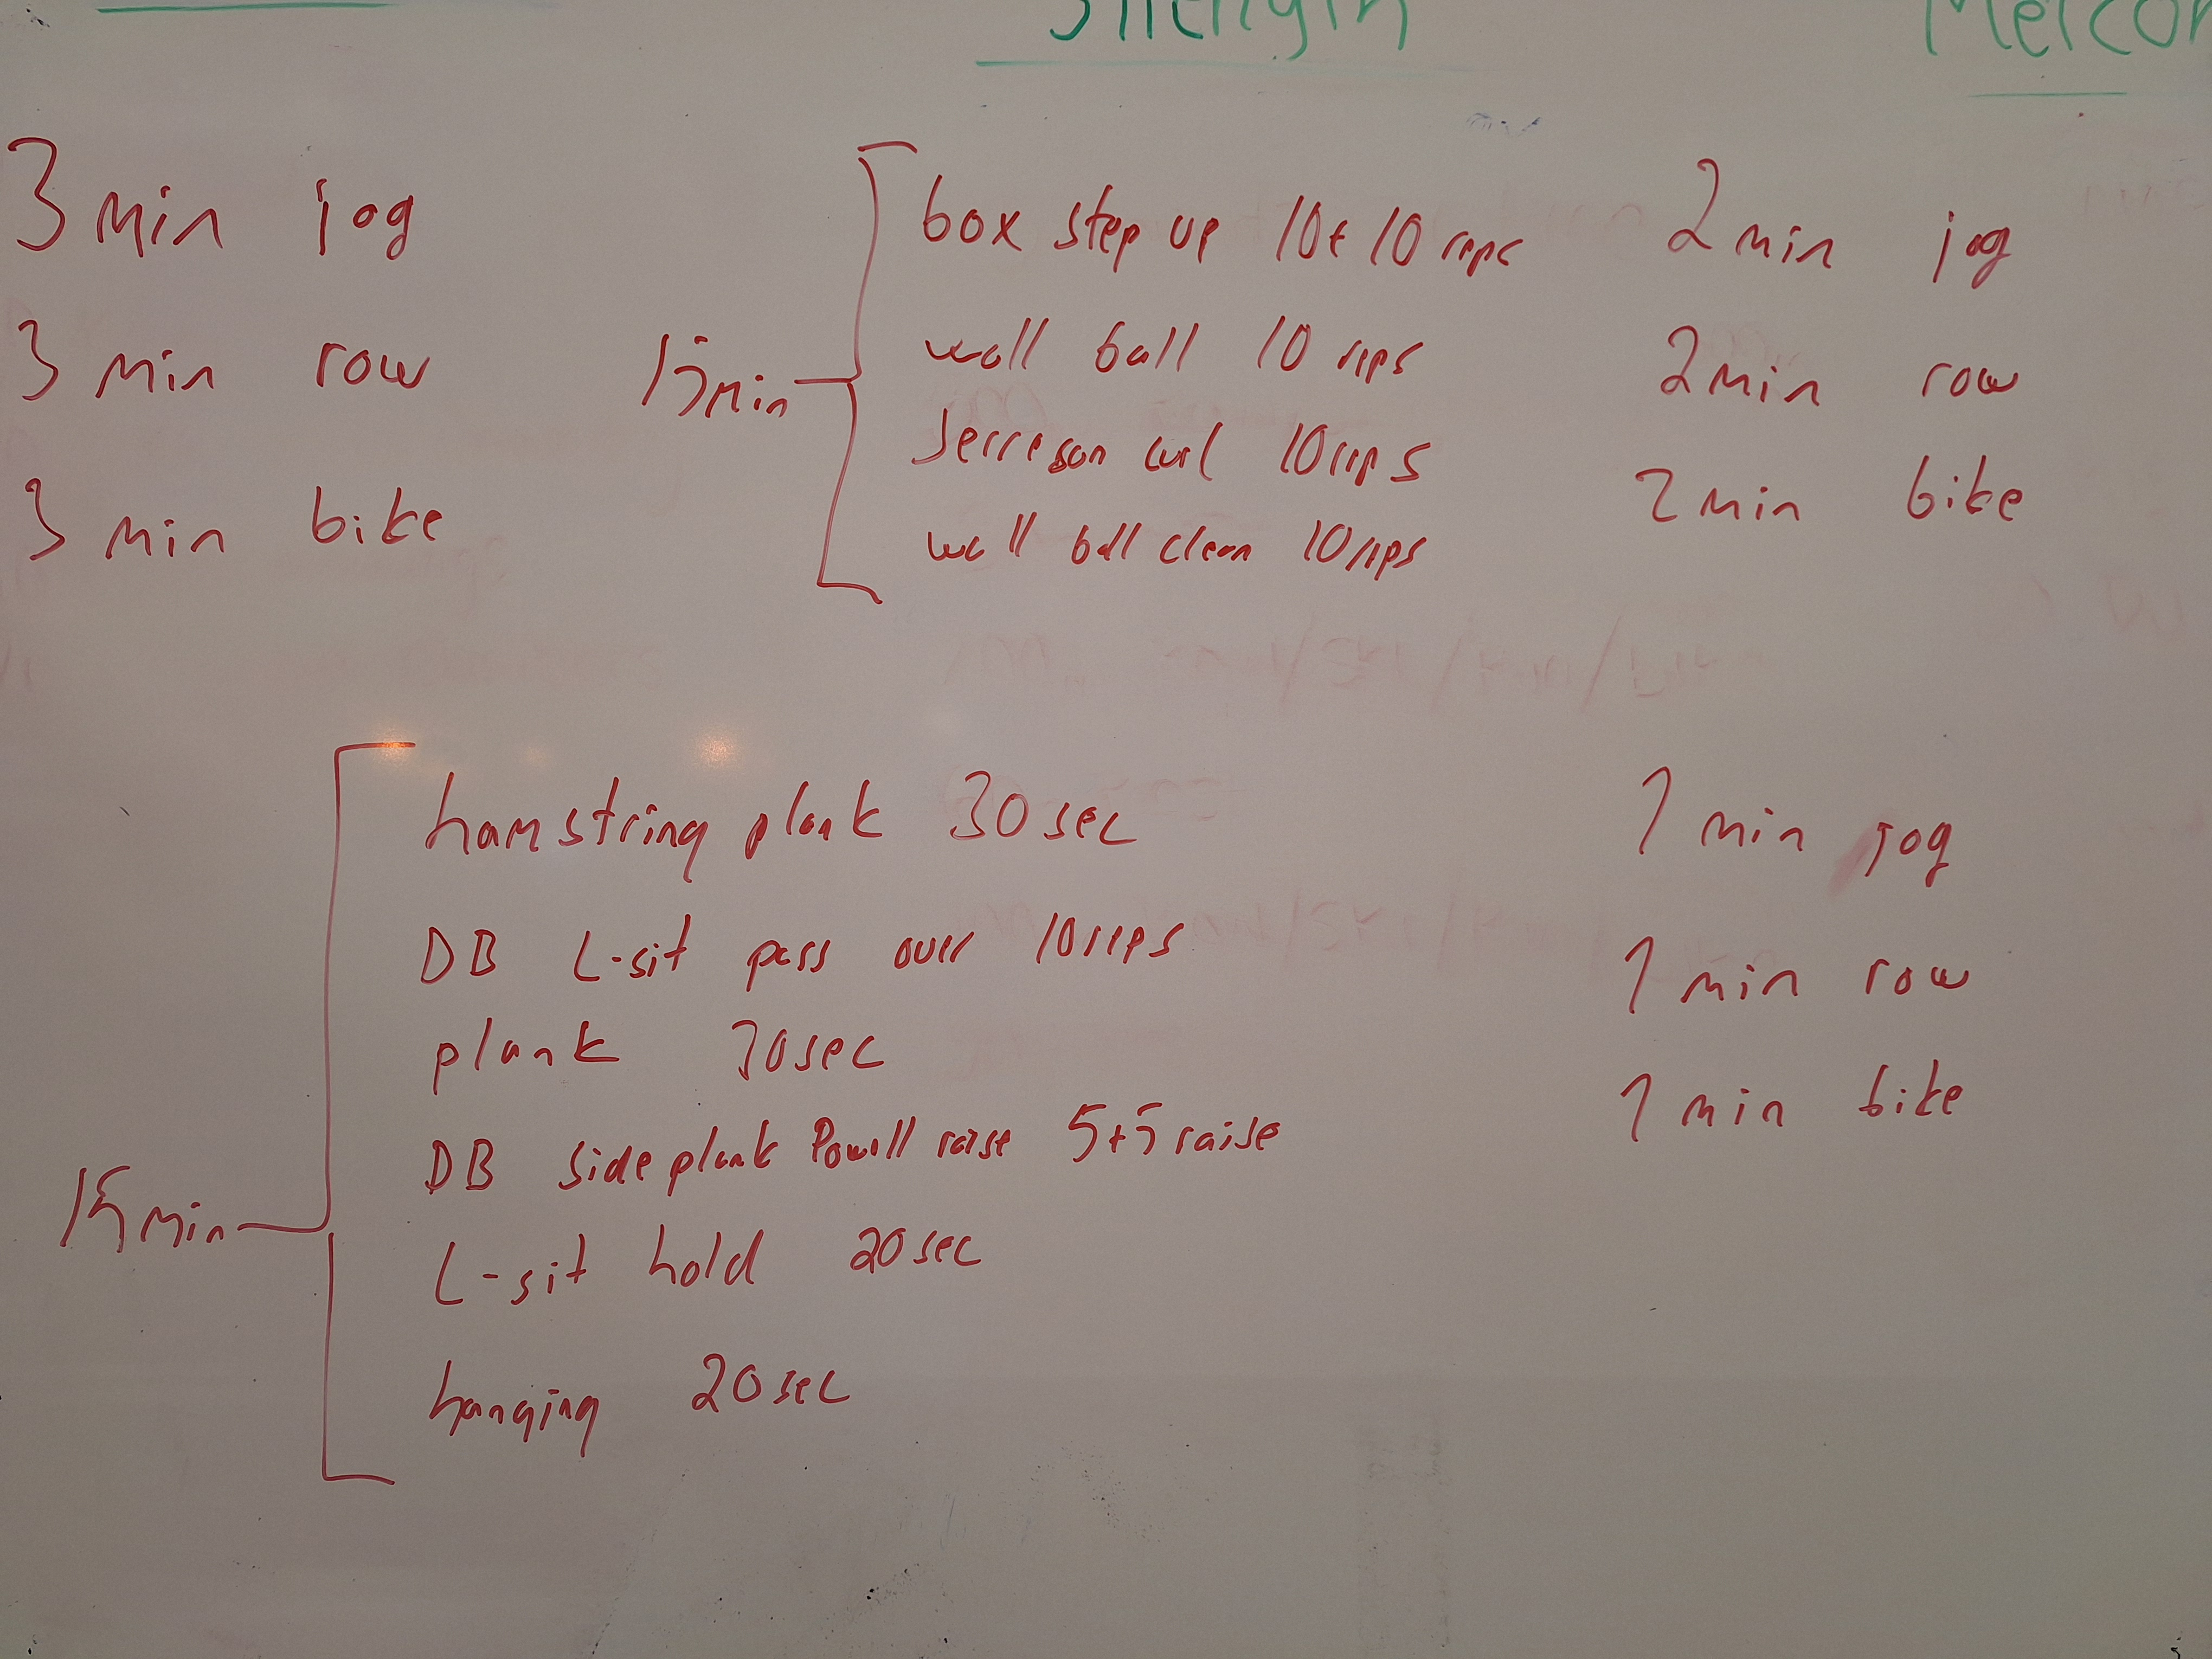 Strength
Metcon
3 min jog
3 min row
3 min bike
15 min
box step up 10+10 reps
wall ball 10 reps
Jerreson curl 10 reps
wall ball clean 10 reps
2 min jog
2 min row
2 min bike
15 min
hamstring plank 30 sec
DB L-sit pass over 10 reps
plank 30 sec
DB side plank Powell raise 5+5 raise
L-sit hold 20 sec
hanging 20 sec
1 min jog
1 min row
1 min bike